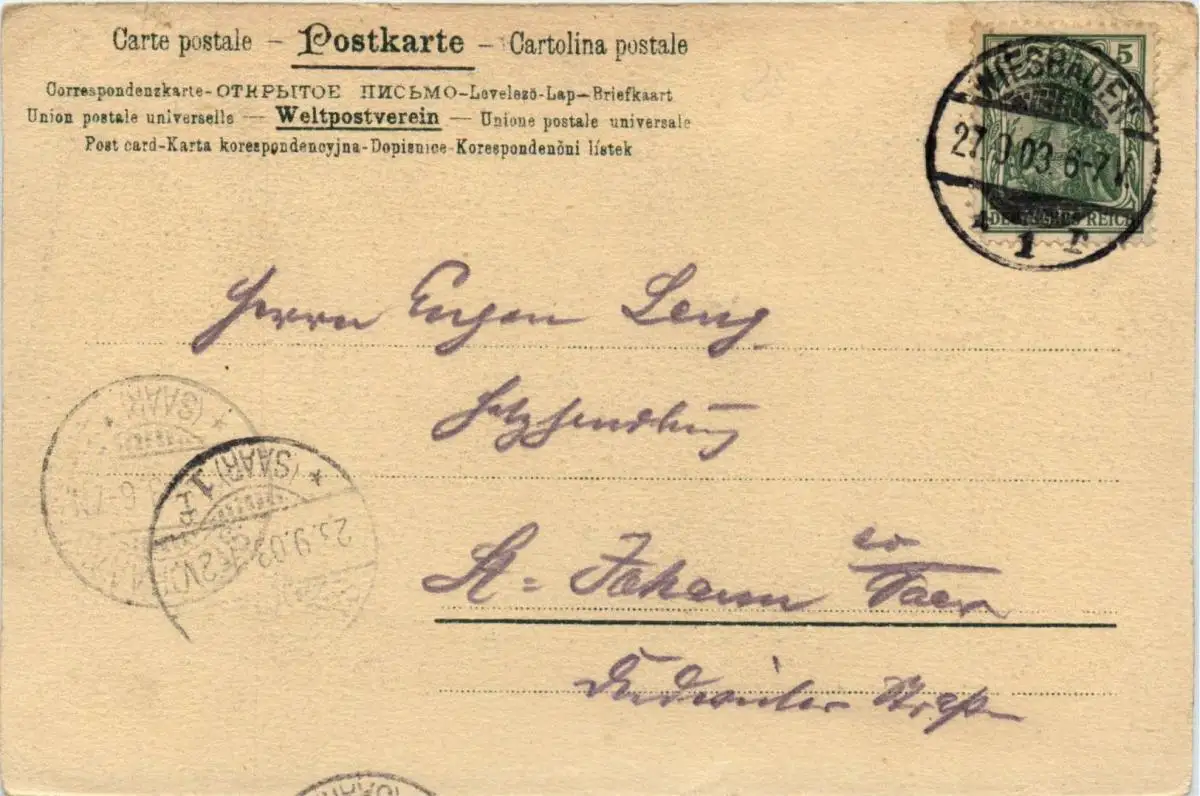 Carte postale – Postkarte – Cartolina postale
Correspondenzkarte-ОТКРЫТОЕ ПИСЬМО-Levelezö-Lap-Briefkaart
Union postale universelle — Weltpostverein — Unione postale universale
Post card-Karta korespondencyjna-Dopisnice-Korespondenční lístek
5
WIESBADEN
27.9.03. 6-7 V.
DEUTSCHES REICH
1
Herrn Eugen Leng
Holzhandlung
(SAAR)
6-7N
(SAAR) 1
9.03
St. Johann a/Saar
Dudweiler Straße